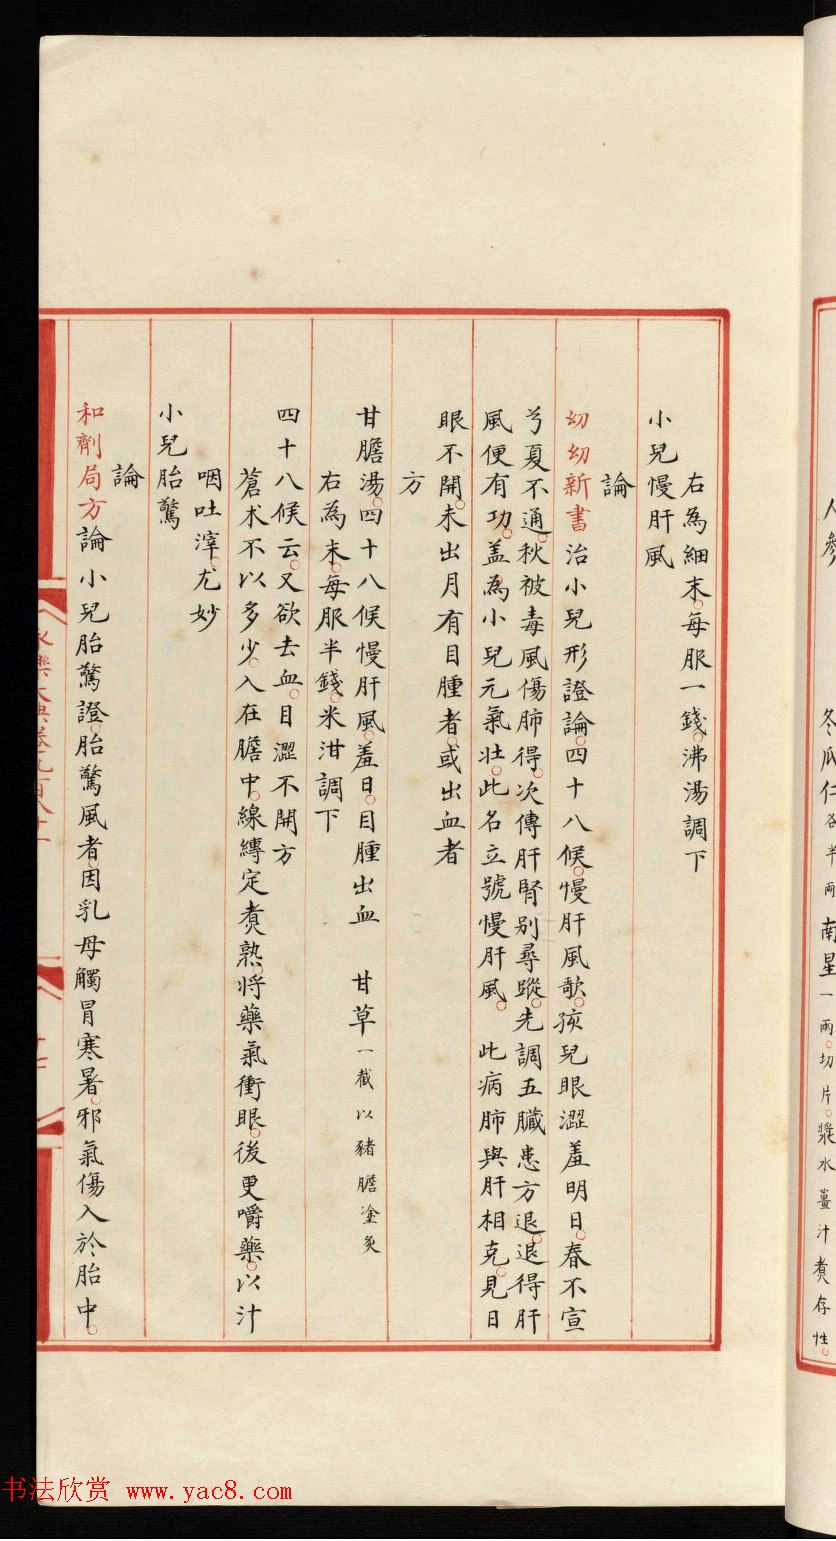 人參
冬瓜仁各半兩 南星一兩切片漿水薑汁煑存性
右為細末每服一錢沸湯調下
小兒慢肝風
論
幼幼新書治小兒形證論四十八候慢肝風歌孩兒眼澀羞明日春不宣
芎夏不通秋被毒風傷肺得次傳肝腎别尋蹤先調五臟患方退退得肝
風便有功盖為小兒元氣壯此名立號慢肝風 此病肺與肝相克見日
眼不開未出月有目腫者或出血者
方
甘膽湯四十八候慢肝風羞日目腫出血 甘草一截以豬膽塗炙
右為末每服半錢米泔調下
四十八候云又欲去血目澀不開方
蒼术不以多少入在膽中線縳定煑熟將藥氣衝眼後更嚼藥以汁
咽吐滓尤妙
小兒胎驚
論
和劑局方論小兒胎驚證胎驚風者因乳母觸冒寒暑邪氣傷入於胎中
永樂大典卷九百八十一
书法欣赏 www.yac8.com